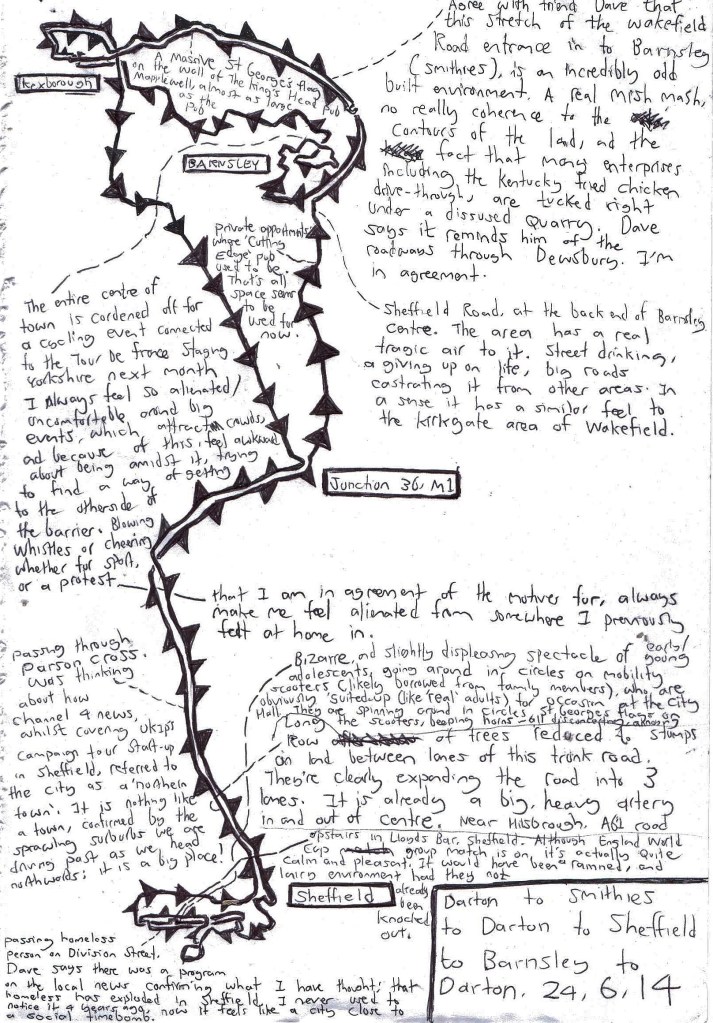 Agree with friend Dave that
this stretch of the Wakefield
Road entrance in to Barnsley
(Smithies), is an incredibly odd
built environment. A real mish mash,
no really coherence to the
contours of the land, and the
fact that many enterprises
including the Kentucky fried chicken
drive-through, are tucked right
under a dissused Quarry. Dave
says it reminds him of the
roadways through Dewsbury. I'm
in agreement.
A massive St George's flag
on the wall of The King's Head Pub
Mapplewell, almost as large
as the
Pub
Kexborough
BARNSLEY
private appartments
where 'Cutting
Edge' pub
used to be.
That's all
space seems
to be
used for
now.
Sheffield Road, at the back end of Barnsley
Centre. The area has a real
tragic air to it. Street drinking,
a giving up on life, big roads
castrating it from other areas. In
a sense it has a similar feel to
the Kirkgate area of Wakefield.
The entire centre of
town is cordened off for
a cycling event connected
to the Tour De France Staging
Yorkshire next month
I Always feel so alienated/
uncomfortable around big
events, which attract crowds,
and because of this, feel awkward
about being amidst it, trying
to find a way of getting
to the otherside of
the barrier. Blowing
whistles or cheering
whether for sport,
or a protest
that I am in agreement of the motives for, always
make me feel alienated from somewhere I previously
felt at home in.
Junction 36, M1
Passing through
Parson Cross.
Was thinking
about how
channel 4 news,
whilst covering UKIPs
campaign tour start-up
in Sheffield, referred to
the city as a 'northern
town'. It is nothing like
a town, confirmed by the
sprawling suburbs we are
driving past as we head
northwards; it is a big place!
Bizarre, and slightly displeasing spectacle of early/
young
adolescents, going around in circles on mobility
scooters (likely borrowed from family members), who are
obviously 'suited-up (like 'real' adults) for occasion at the City
Hall. They are spinning around in circles, St Georges flags on
the scooters, beeping horns
Long
Row of trees reduced to stumps
on land between lanes of this trunk road.
They're clearly expanding the road into 3
lanes. It is already a big, heavy artery
in and out of centre. Near Hillsbrough. A61 road
Upstairs in Lloyds Bar, Sheffield. Although England World
Cup group match is on, it's actually quite
calm and pleasant. It would have been rammed, and
lairy environment had they not
already
been
knocked
out.
Sheffield
passing homeless
person on Division Street.
Dave says there was a program
on the local news confirming what I have thought; that
homeless has exploded in Sheffield. I never used to
notice it 4 years ago, now it feels like a city close to
a social timebomb.
Darton to Smithies
to Darton to Sheffield
to Barnsley to
Darton, 24, 6, 14